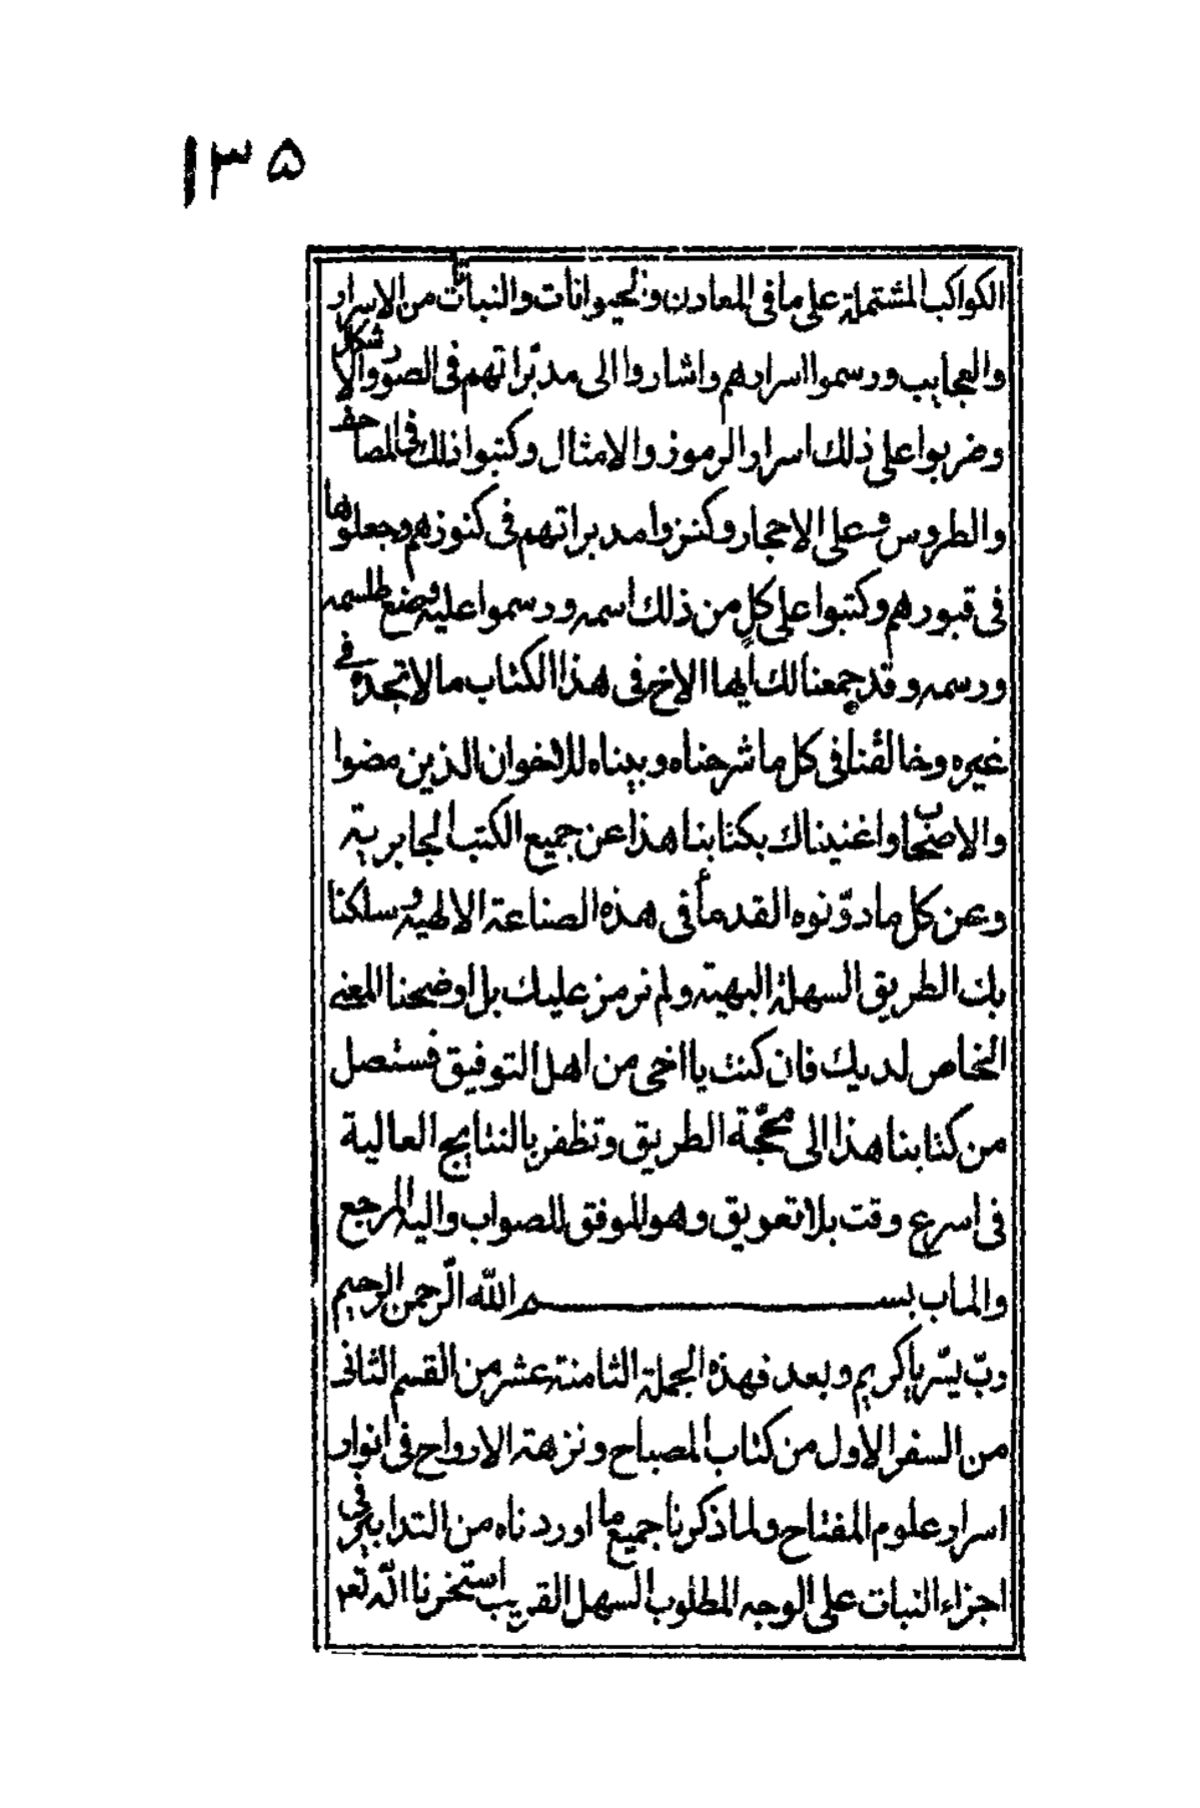 ١٣٥
الكواكب المشتملة على ما فى المعادن والحيوانات والنباتات من الاسرار
والعجايب ورسموا اسرارهم واشاروا الى مدبّراتهم فى الصور والاشكال
وضربوا على ذلك اسرار الرموز والامثال وكتبوا ذلك فى المصاحف
والطروس وعلى الاحجار وكنزوا مدبراتهم فى كنوزهم وجعلوها
فى قبورهم وكتبوا على كل من ذلك اسمه ورسموا عليه وضع طلسمه
ورسمه وقد جمعنا لك أيها الاخ فى هذا الكتاب ما لا تجده في
غيره وخالفنا فى كل ما شرحناه وبيناه للاخوان الذين مضوا
والاصحاب واغنيناك بكتابنا هذا عن جميع الكتب الجابرية
وعن كل ما دوّنوه القدمأ فى هذه الصناعة الالهية وسلكنا
بك الطريق السهلة البهية ولم نرمز عليك بل اوضحنا المعنى
الخاص لديك فان كنت يا اخى من اهل التوفيق فستصل
من كتابنا هذا الى محجّة الطريق وتظفر بالنتايج العالية
فى اسرع وقت بلا تعويق وهو الموفق للصواب واليه المرجع
والماب بسم الله الرّحمن الرحيم
وبّ يسّر يا كريم وبعد فهذه الجملة الثامنة عشر من القسم الثانى
من السفر الأول من كتاب المصباح ونزهة الارواح فى انوار
اسرار علوم المفتاح ولما ذكرنا جميع ما اوردناه من التدابير فى
اجزاء النبات على الوجه المطلوب السهل القريب استخرنا الله تعم